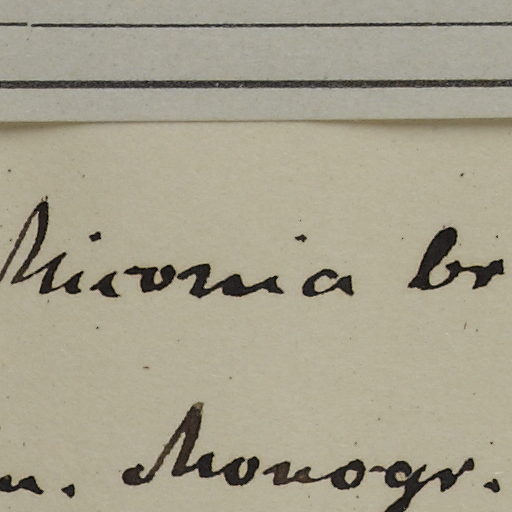 Miconia br
n. Monogr.